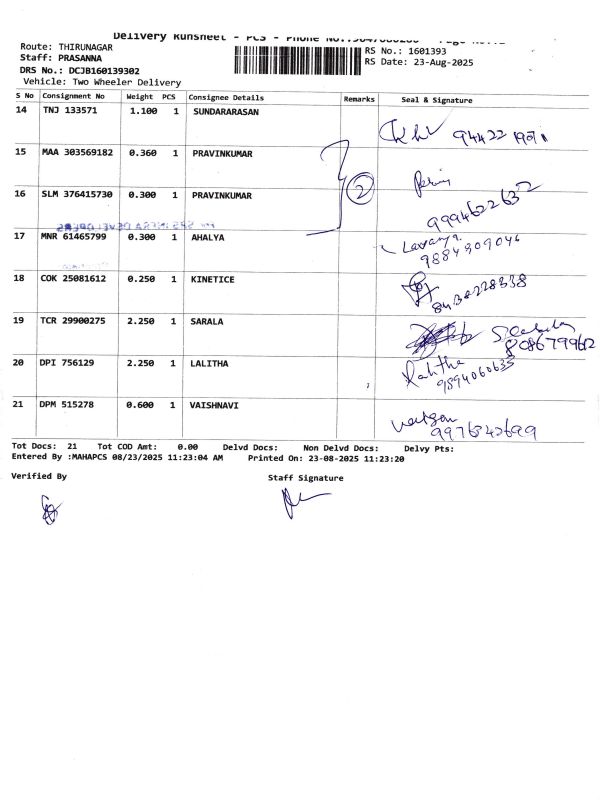 Delivery Runsheet - PCS - Phone No.:
Route: THIRUNAGAR
Staff: PRASANNA
DRS No.: DCJB160139302
Vehicle: Two Wheeler Delivery
RS No.: 1601393
RS Date: 23-Aug-2025
S No Consignment No Weight PCS Consignee Details Remarks Seal & Signature
14 TNJ 133571 1.100 1 SUNDARARASAN
15 MAA 303569182 0.360 1 PRAVINKUMAR
2
16 SLM 376415730 0.300 1 PRAVINKUMAR
9994622632
17 MNR 61465799 0.300 1 AHALYA
Lavanya.
9884909046
18 COK 25081612 0.250 1 KINETICE
8438228338
19 TCR 29900275 2.250 1 SARALA
8086799612
20 DPI 756129 2.250 1 LALITHA
Lalitha
9894060635
21 DPM 515278 0.600 1 VAISHNAVI
9976542699
Tot Docs: 21 Tot COD Amt: 0.00 Delvd Docs: Non Delvd Docs: Delvy Pts:
Entered By :MAHAPCS 08/23/2025 11:23:04 AM Printed On: 23-08-2025 11:23:20
Verified By Staff Signature